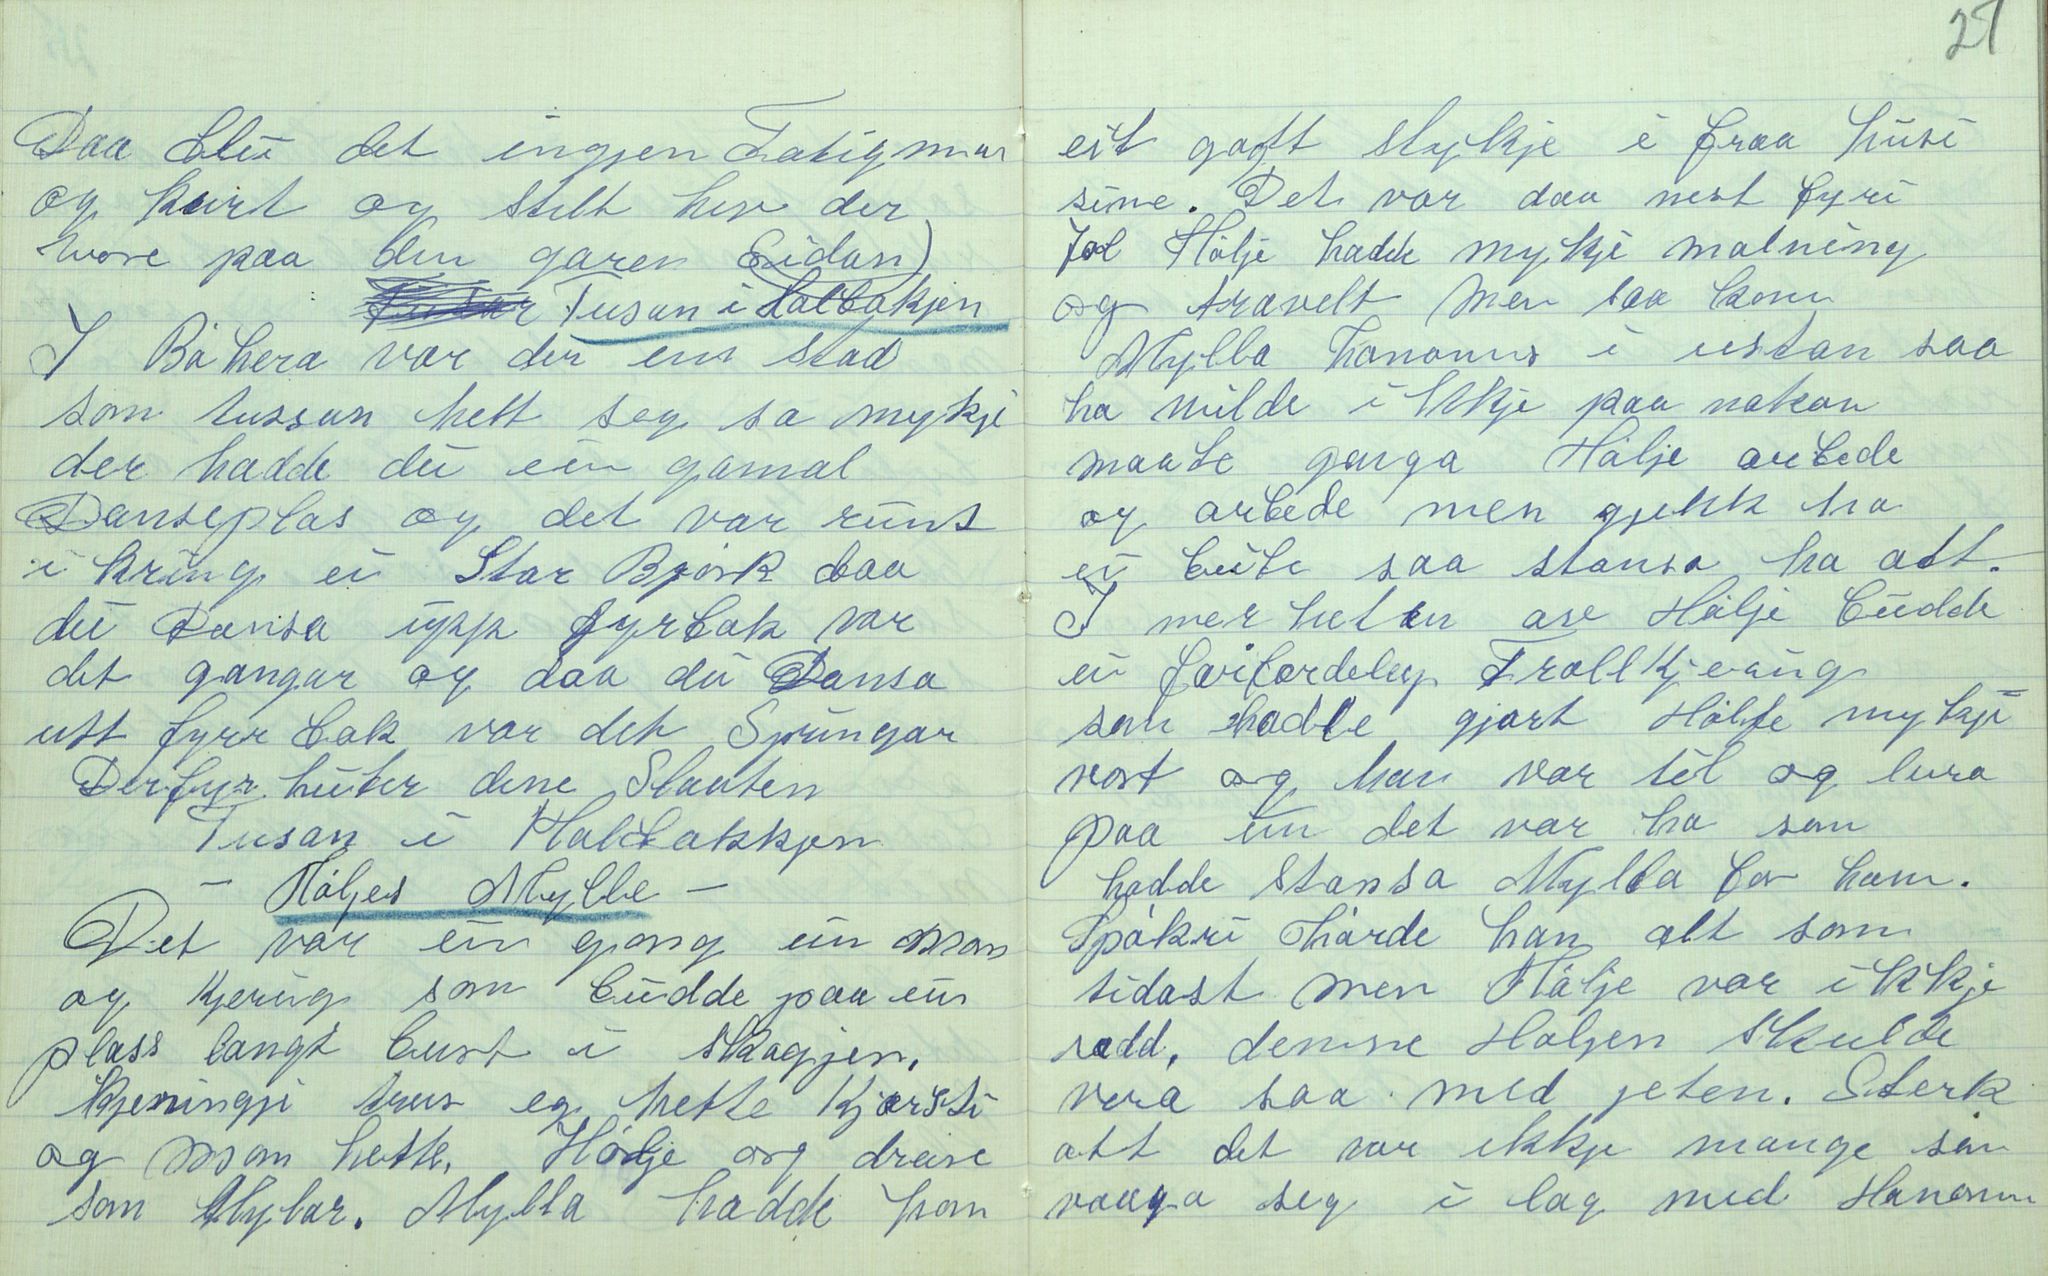 Daa blei det ingjen Fatigman
og keirt og stelt hev der
vore paa den garen Eidan)
Tusan i Halbakjen
I Båhera var der ein stad
som tussan helt seg so mykje
der hadde dei ein gamal
Danseplas og det var runt
i kring ei Stor Bjørk daa
dei Dansa upp fyrbak var
det gangar og daa dei Dansa
utt fyrr bak var det Springar
Derfyr heiter dene Slaaten
Tusan i Halbakkjen
- Høljes Mylle -
Det var ein gong ein Man
og kjering som budde paa ein
plass langt burt i skogjen.
kjeringji trur eg hette Kjærsti
og Man hette. Hølje og dreive
som Mylar. Mylla hadde han
27
eit gott stykje i fraa husi
sine. Det var daa nest fyri
Jol Hølje hadde mykji malning
og travelt men saa kom
Mylla hanoms i ustan saa
ho vilde ikkje paa nokon
maate ganga Hølje arbede
og arbede men gjekk ho
ei bite saa stansa ho att.
I nerheten av Hølji budde
ei forfordeleg Trollkjering
som hadde gjort Hølje mykji
vont og han var til og lura
paa um det var ho som
hadde stansa Mylla for ham.
Spøkri Hørde han alt som
tidast men Hølje var ikkje
redd, denne Holjen skulde
vera saa med jeten. Sterk
att det var ikkje mange som
vaaga seg i lag med Hanom